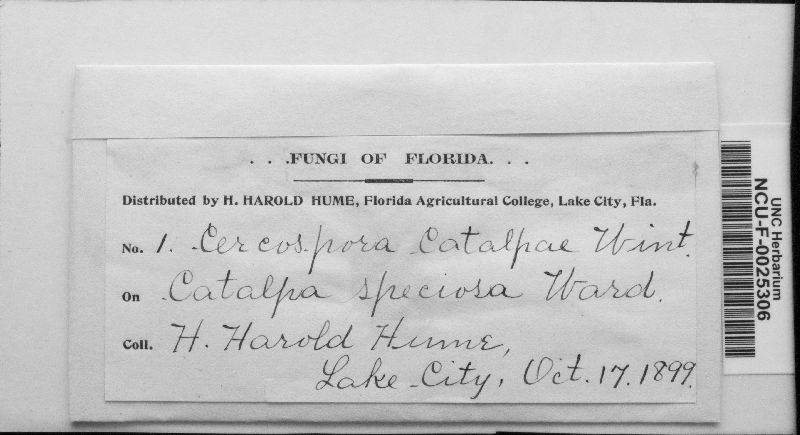 . . .FUNGI OF FLORIDA. . .
Distributed by H. HAROLD HUME, Florida Agricultural College, Lake City, Fla.
No. 1. Cercospora Catalpae Wint.
On Catalpa speciosa Ward.
Coll. H. Harold Hume,
Lake City, Oct. 17. 1899.
UNC Herbarium
NCU-F-0025306